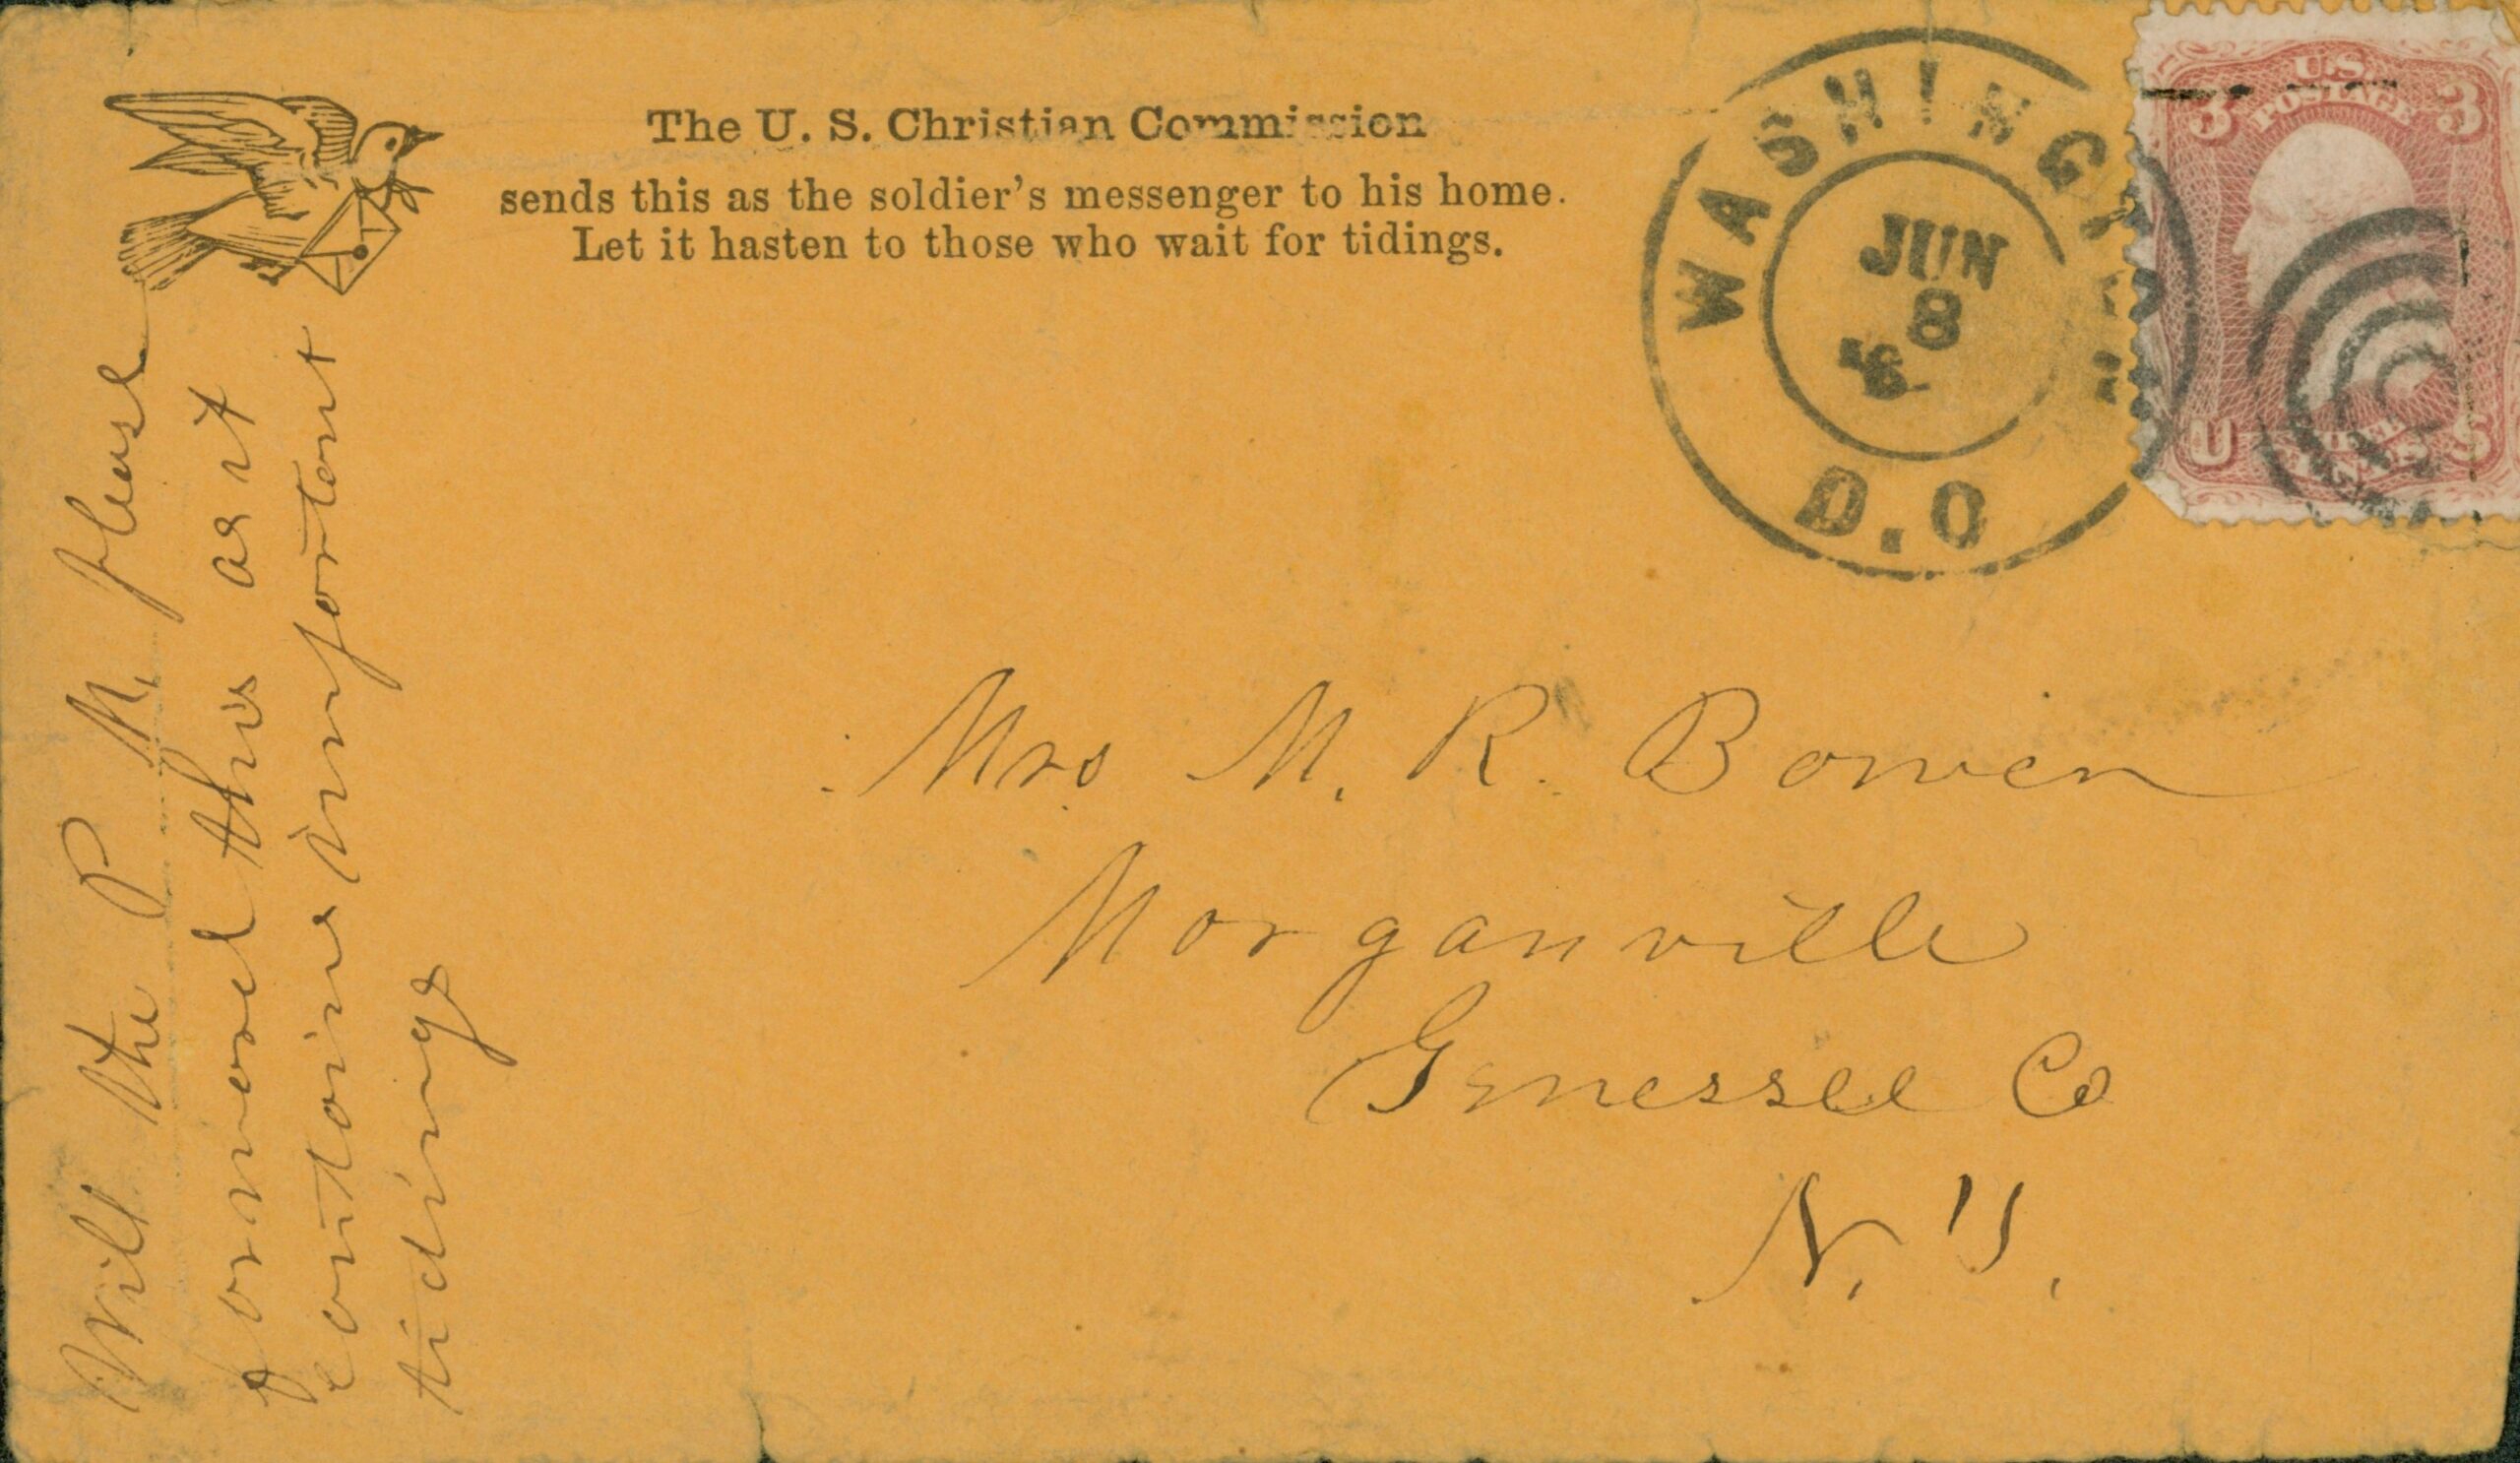 The U. S. Christian Commission
sends this as the soldier's messenger to his home.
Let it hasten to those who wait for tidings.
WASHINGTON
JUN
8
D.C
U.S.
POSTAGE
3 3
U S
Mrs M. R. Bowen
Morganville
Genessee Co
N.Y.
Will the P M. please
forward this as it
contains important
tidings